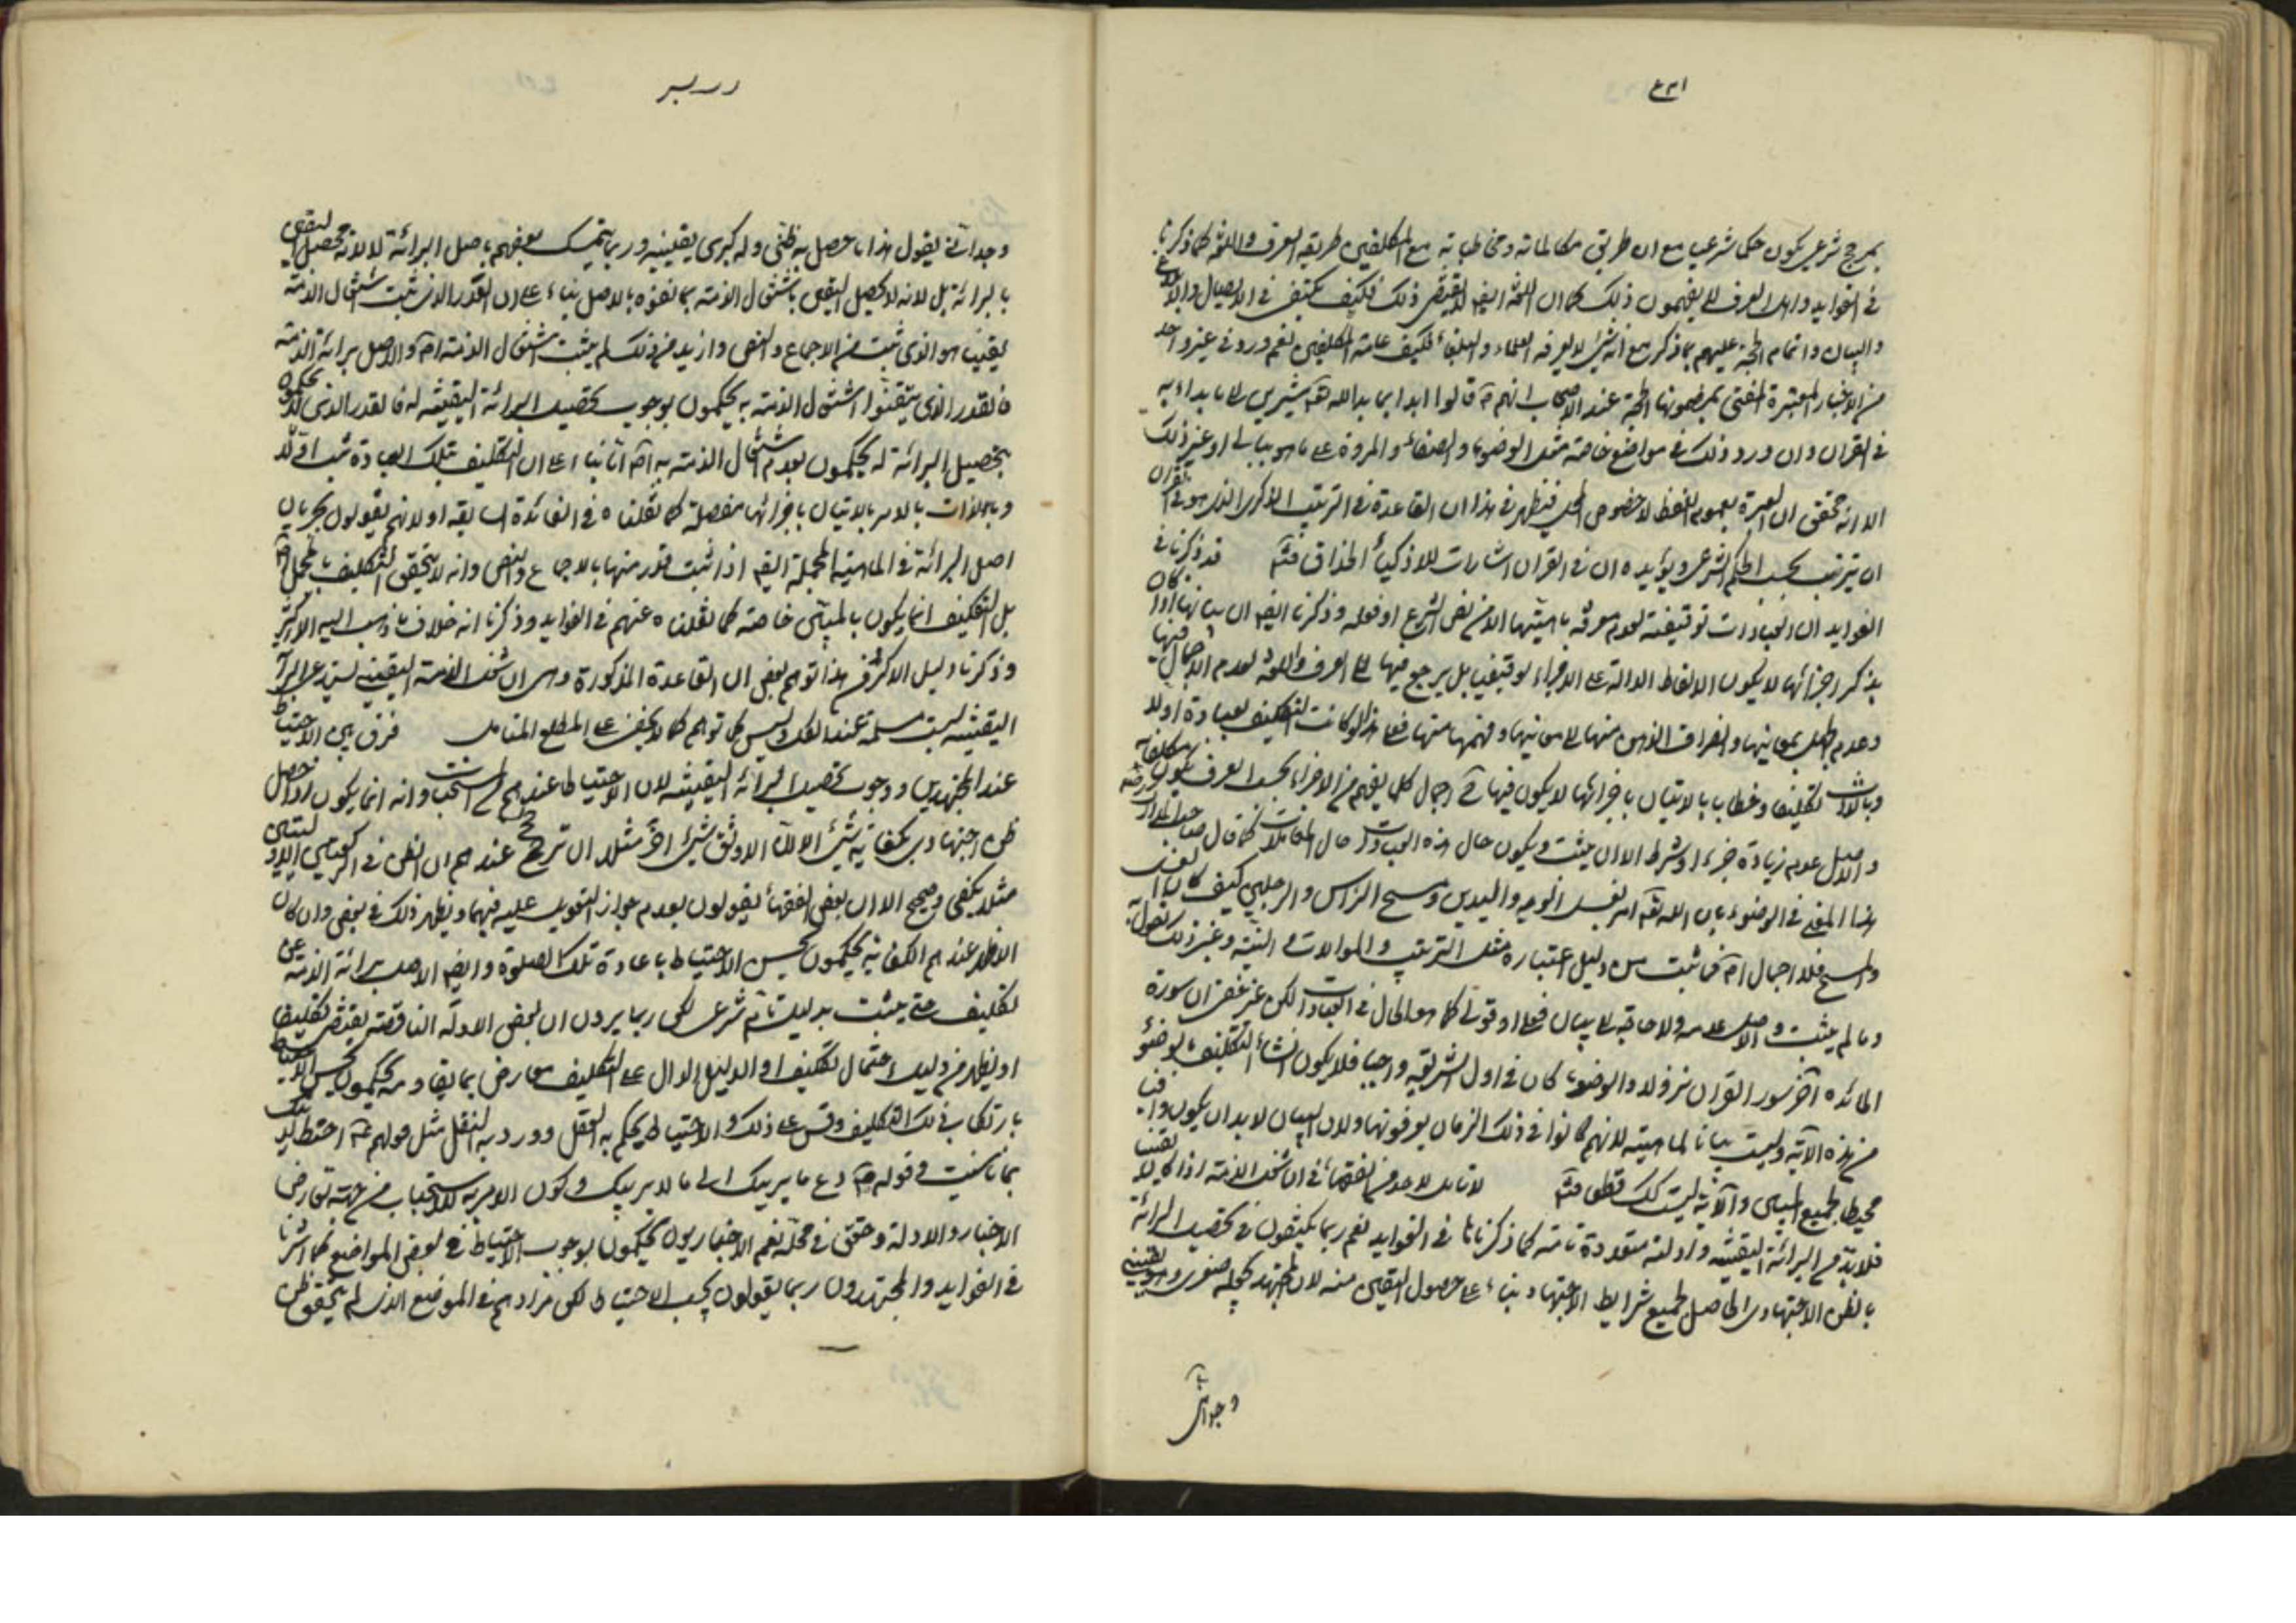 بمرجح شرعي يكون حكما شرعيا مع ان طريق مكالماته ومخاطباته مع المكلفين طريقة العرف واللغة كما ذكرنا
في الفوايد واهل العرف لا يفهمون ذلك كما ان اللغة ايضا لا يقتضي ذلك فكيف يكتفى في الايصال والابلاغ
والبيان واتمام الحجة عليهم بما ذكر مع انه شيء لا يعرفه العلماء والبلغاء فكيف عامة المكلفين نعم ورد في غير واحد
من الاخبار المعتبرة المفتى بمضمونها الحجة عند الاصحاب انهم قالوا ابدا بما بدا الله يشيرون الى ما بداء به
في القران وان ورود ذلك في مواضع خاصة مثل الوضوء والصفا والمروة على ما هو ببالي او غير ذلك
الا انه تحقق ان العبرة بعموم اللفظ لا خصوص المحل فيظهر من هذا ان القاعدة في الترتيب الذكري الذي هو في القران
ان يترتب بحسب الحكم الشرعي ويؤيده ان في القران اشارات للاذكياء الحذاق فتم قد ذكرنا في
الفوايد ان العبادات توقيفية لعدم معرفة ماهيتها الا من نص الشرع او فعله وذكرنا ايضا ان بيانها اذا كان
بذكر اجزائها لا يكون الالفاظ الدالة على الاجزاء توقيفيا بل يرجع فيها الى العرف واللغة لعدم الاجمال فيها
وعدم الجهل بمعانيها وانصراف الذهن منها الى معانيها وفهمها منها فعلى هذا لو كانت التكليف بعبادة اولا
وبالذات تكليفا وخطابا بالاتيان باجزائها لا يكون فيها اجمال كلما يفهم من الاجزاء بحسب العرف يكون مكلفا به
والاصل عدم زيادة جزء او شرط الا ان يثبت ويكون حال هذه العبادات حال المعاملات كما قال صاحب المدارك
هذا المعنى في الوضوء بان الله تعالى امر بغسل الوجه واليدين ومسح الراس والرجلين كيف كان الغسل
والمسح فلا اجمال فما ثبت من دليل اعتباره مثل الترتيب والموالات والنية وغير ذلك نقول به
وما لم يثبت والاصل عدمه ولا حاجة الى بيان فعلي او قولي كما هو الحال في العبادات لكن غير خفي ان سورة
المائده آخر سور القران نزولا والوضوء كان في اول الشريعة واجبا فلا يكون انشاء التكليف بالوضوء
من هذه الآية وليست بيانا لماهيته لانهم كانوا في ذلك الزمان يعرفونها ولان البيان لا بد ان يكون وافيا
محيطا بجميع المبين والآية ليست كك قطعا فتم لا تامل لاحد من الفقهاء في ان شغل الذمة اذا كان يقينيا
فلا بد من البرائة اليقينية وادلته متعددة تامة كما ذكرناها في الفوايد نعم ربما يكتفون في تحصيل البرائة
بالظن الاجتهادي الحاصل لجميع شرايط الاجتهاد بناء على حصول اليقين منه لان المجتهد يجعله صغرى وهو يقيني
وجداني
وجداني فيقول هذا ما حصل به ظني وله كبرى يقينية وربما يتمسك بعضهم باصل البرائة لا لانه تحصيل اليقين
بالبرائة بل لانه لا يحصل اليقين باشتغال الذمة بما نفوه بالاصل بناء على ان القدر الذي ثبت اشتغال الذمة
يقينا هو الذي ثبت من الاجماع والنص وازيد من ذلك لم يثبت اشتغال الذمة والاصل برائة الذمة
فالقدر الذي يتيقنوا اشتغال الذمة به يحكمون بوجوب تحصيل البرائة اليقينية له فالقدر الذي لا يحكمون
بتحصيل البرائة له يحكمون بعدم اشتغال الذمة به اما بناء على ان التكليف بتلك العبادة ثبت اولا
وبالذات بالامر بالاتيان باجزائها مفصلة كما نقلناه في الفائدة السابقة او لانهم يقولون بجريان
اصل البرائة في الماهية المجملة ايضا اذا ثبت قدر منها بالاجماع والنص وانه لا يتحقق التكليف بالمجمل
بل التكليف انما يكون بالمبين خاصة كما نقلناه عنهم في الفوايد وذكرنا انه خلاف ما ذهب اليه الاكثر
وذكرنا دليل الاكثر فمن هذا توهم بعض ان القاعدة المذكورة وهي ان شغل الذمة اليقيني يستدعي البرائة
اليقينية ليست مسلمة عند الكل وليس كما توهم كما لا يخفى على المطلع المتامل فرق بين الاحتياط
عند المجتهدين ووجوب تحصيل البرائة اليقينية لان الاحتياط عندهم مستحب وانه انما يكون اذا حصل
ظن اجتهادي بكفاية شيء الا ان الاوثق شيء آخر مثلا ان ترجح عندهم ان الظن في الركعتين الاوليين
مثلا يكفي وصحيح الا ان بعض الفقهاء يقولون بعدم جواز التعويل عليه فيهما ويظهر ذلك في بعض وان كان
الاظهر عندهم الكفاية يحكمون بحسن الاحتياط باعادة تلك الصلوة وايضا الاصل برائة الذمة عن
تكليف حتى يثبت بدليل تام شرعي لكن ربما يرون ان بعض الادلة الناقصة يقتضي تكليفا
او يظهر من دليل احتمال تكليف او الدليل الدال على التكليف معارض بما يقاومه يحكمون بحسن الاحتياط
بارتكاب ذلك التكليف وقس على ذلك والاحتياط يحكم به العقل وورد به النقل مثل قولهم احتط لدينك
بما شئت وقوله دع ما يريبك الى ما لا يريبك وكون الامر به للاستحباب من جهة تعارض
الاخبار والادلة وحقق في محله نعم الاخباريون يحكمون بوجوب الاحتياط في بعض المواضع كما اشرنا
في الفوايد والمجتهدون ربما يقولون يجب الاحتياط لكن مرادهم في الموضع الذي لم يتحقق ظن